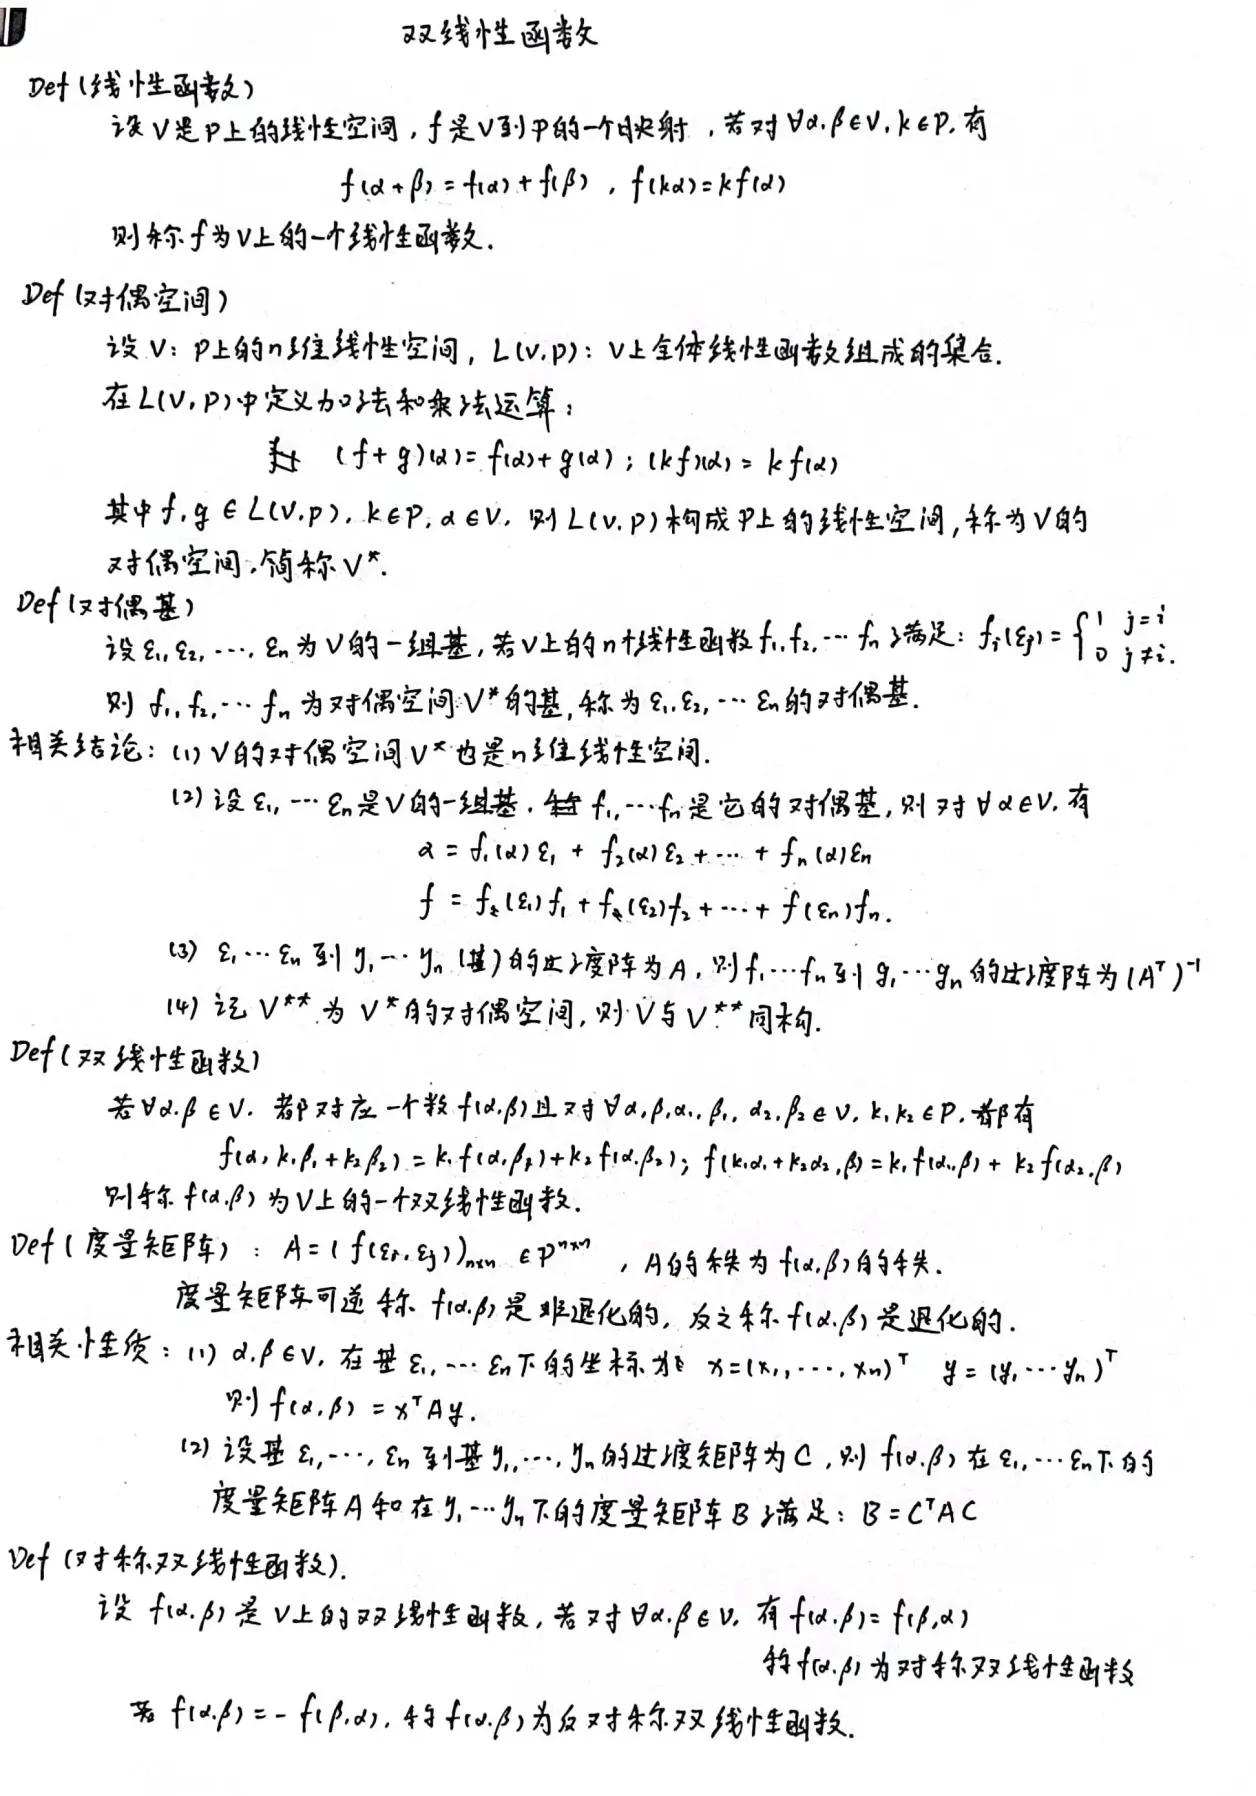 双线性函数
Def(线性函数)
设V是P上的线性空间,f是V到P的一个映射,若对∀α,β∈V,k∈P,有
f(α+β)=f(α)+f(β),f(kα)=kf(α)
则称f为V上的一个线性函数.
Def(对偶空间)
设V:P上的n维线性空间,L(V,P):V上全体线性函数组成的集合.
在L(V,P)中定义加法和乘法运算:
(f+g)(α)=f(α)+g(α);(kf)(α)=kf(α)
其中f,g∈L(V,P),k∈P,α∈V,则L(V,P)构成P上的线性空间,称为V的
对偶空间,简称V*.
Def(对偶基)
设ε₁,ε₂,…,εn为V的一组基,若V上的n个线性函数f₁,f₂,…fn满足:fᵢ(εⱼ)={1 j=i
0 j≠i.
则f₁,f₂,…fn为对偶空间V*的基,称为ε₁,ε₂,…εn的对偶基.
相关结论:(1)V的对偶空间V*也是n维线性空间.
(2)设ε₁,…εn是V的一组基.f₁,…fn是它的对偶基,则对∀α∈V,有
α=f₁(α)ε₁+f₂(α)ε₂+…+fn(α)εn
f=f(ε₁)f₁+f(ε₂)f₂+…+f(εn)fn.
(3)ε₁…εn到y₁…yn(基)的过渡阵为A,则f₁…fn到g₁…gn的过渡阵为(Aᵀ)⁻¹
(4)记V**为V*的对偶空间,则V与V**同构.
Def(双线性函数)
若∀α,β∈V.都对应一个数f(α,β)且对∀α,β,α₁,β₁,α₂,β₂∈V,k₁k₂∈P,都有
f(α,k₁β₁+k₂β₂)=k₁f(α,β₁)+k₂f(α,β₂);f(k₁α₁+k₂α₂,β)=k₁f(α₁,β)+k₂f(α₂,β)
则称f(α,β)为V上的一个双线性函数.
Def(度量矩阵):A=(f(εᵢ,εⱼ))n×n∈Pⁿˣⁿ,A的秩为f(α,β)的秩.
度量矩阵可逆称f(α,β)是非退化的,反之称f(α,β)是退化的.
相关性质:(1)α,β∈V,在基ε₁,…εn下的坐标为x=(x₁,…,xn)ᵀ y=(y₁…yn)ᵀ
则f(α,β)=xᵀAy.
(2)设基ε₁,…,εn到基y₁,…,yn的过渡矩阵为C,则f(α,β)在ε₁,…εn下的
度量矩阵A和在y₁…yn下的度量矩阵B满足:B=CᵀAC
Def(对称双线性函数).
设f(α,β)是V上的双线性函数,若对∀α,β∈V,有f(α,β)=f(β,α)
称f(α,β)为对称双线性函数
若f(α,β)=-f(β,α),称f(α,β)为反对称双线性函数.